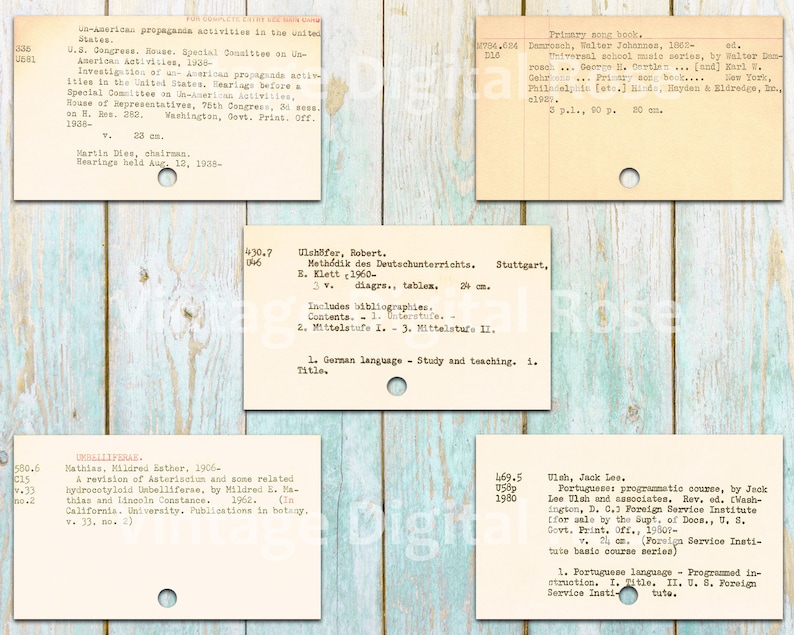 FOR COMPLETE ENTRY SEE MAIN CARD
Un-American propaganda activities in the United
States.
335
U581
U.S. Congress. House. Special Committee on Un-
American Activities, 1938-
Investigation of un- American propaganda activ-
ities in the United States. Hearings before a
Special Committee on Un-American Activities,
House of Representatives, 75th Congress, 3d sess.
on H. Res. 282. Washington, Govt. Print. Off.
1938-
v. 23 cm.
Martin Dies, chairman.
Hearings held Aug. 12, 1938-
Primary song book.
M784.624
D16
Damrosch, Walter Johannes, 1862- ed.
Universal school music series, by Walter Dam-
rosch ... George H. Gartlan ... [and] Karl W.
Gehrkens ... Primary song book.... New York,
Philadelphia [etc.] Hinds, Hayden & Eldredge, Inc.,
c1927.
3 p.l., 90 p. 20 cm.
430.7
U46
Ulshöfer, Robert.
Methodik des Deutschunterrichts. Stuttgart,
E. Klett [1960-
3 v. diagrs., tables. 24 cm.
Includes bibliographies.
Contents. - 1. Unterstufe. -
2. Mittelstufe I. - 3. Mittelstufe II.
1. German language - Study and teaching. i.
Title.
UMBELLIFERAE.
580.6
C15
v.33
no.2
Mathias, Mildred Esther, 1906-
A revision of Asteriscium and some related
hydrocotyloid Umbelliferae, by Mildred E. Ma-
thias and Lincoln Constance. 1962. (In
California. University. Publications in botany.
v. 33. no. 2)
469.5
U58p
1980
Ulsh, Jack Lee.
Portuguese: programmatic course, by Jack
Lee Ulsh and associates. Rev. ed. [Wash-
ington, D. C.] Foreign Service Institute
[for sale by the Supt. of Docs., U. S.
Govt. Print. Off., 1980?-
v. 24 cm. (Foreign Service Insti-
tute basic course series)
1. Portuguese language - Programmed in-
struction. I. Title. II. U. S. Foreign
Service Insti- tute.
Vintage Digital Rose
Vintage Digital Rose
Vintage Digital Rose